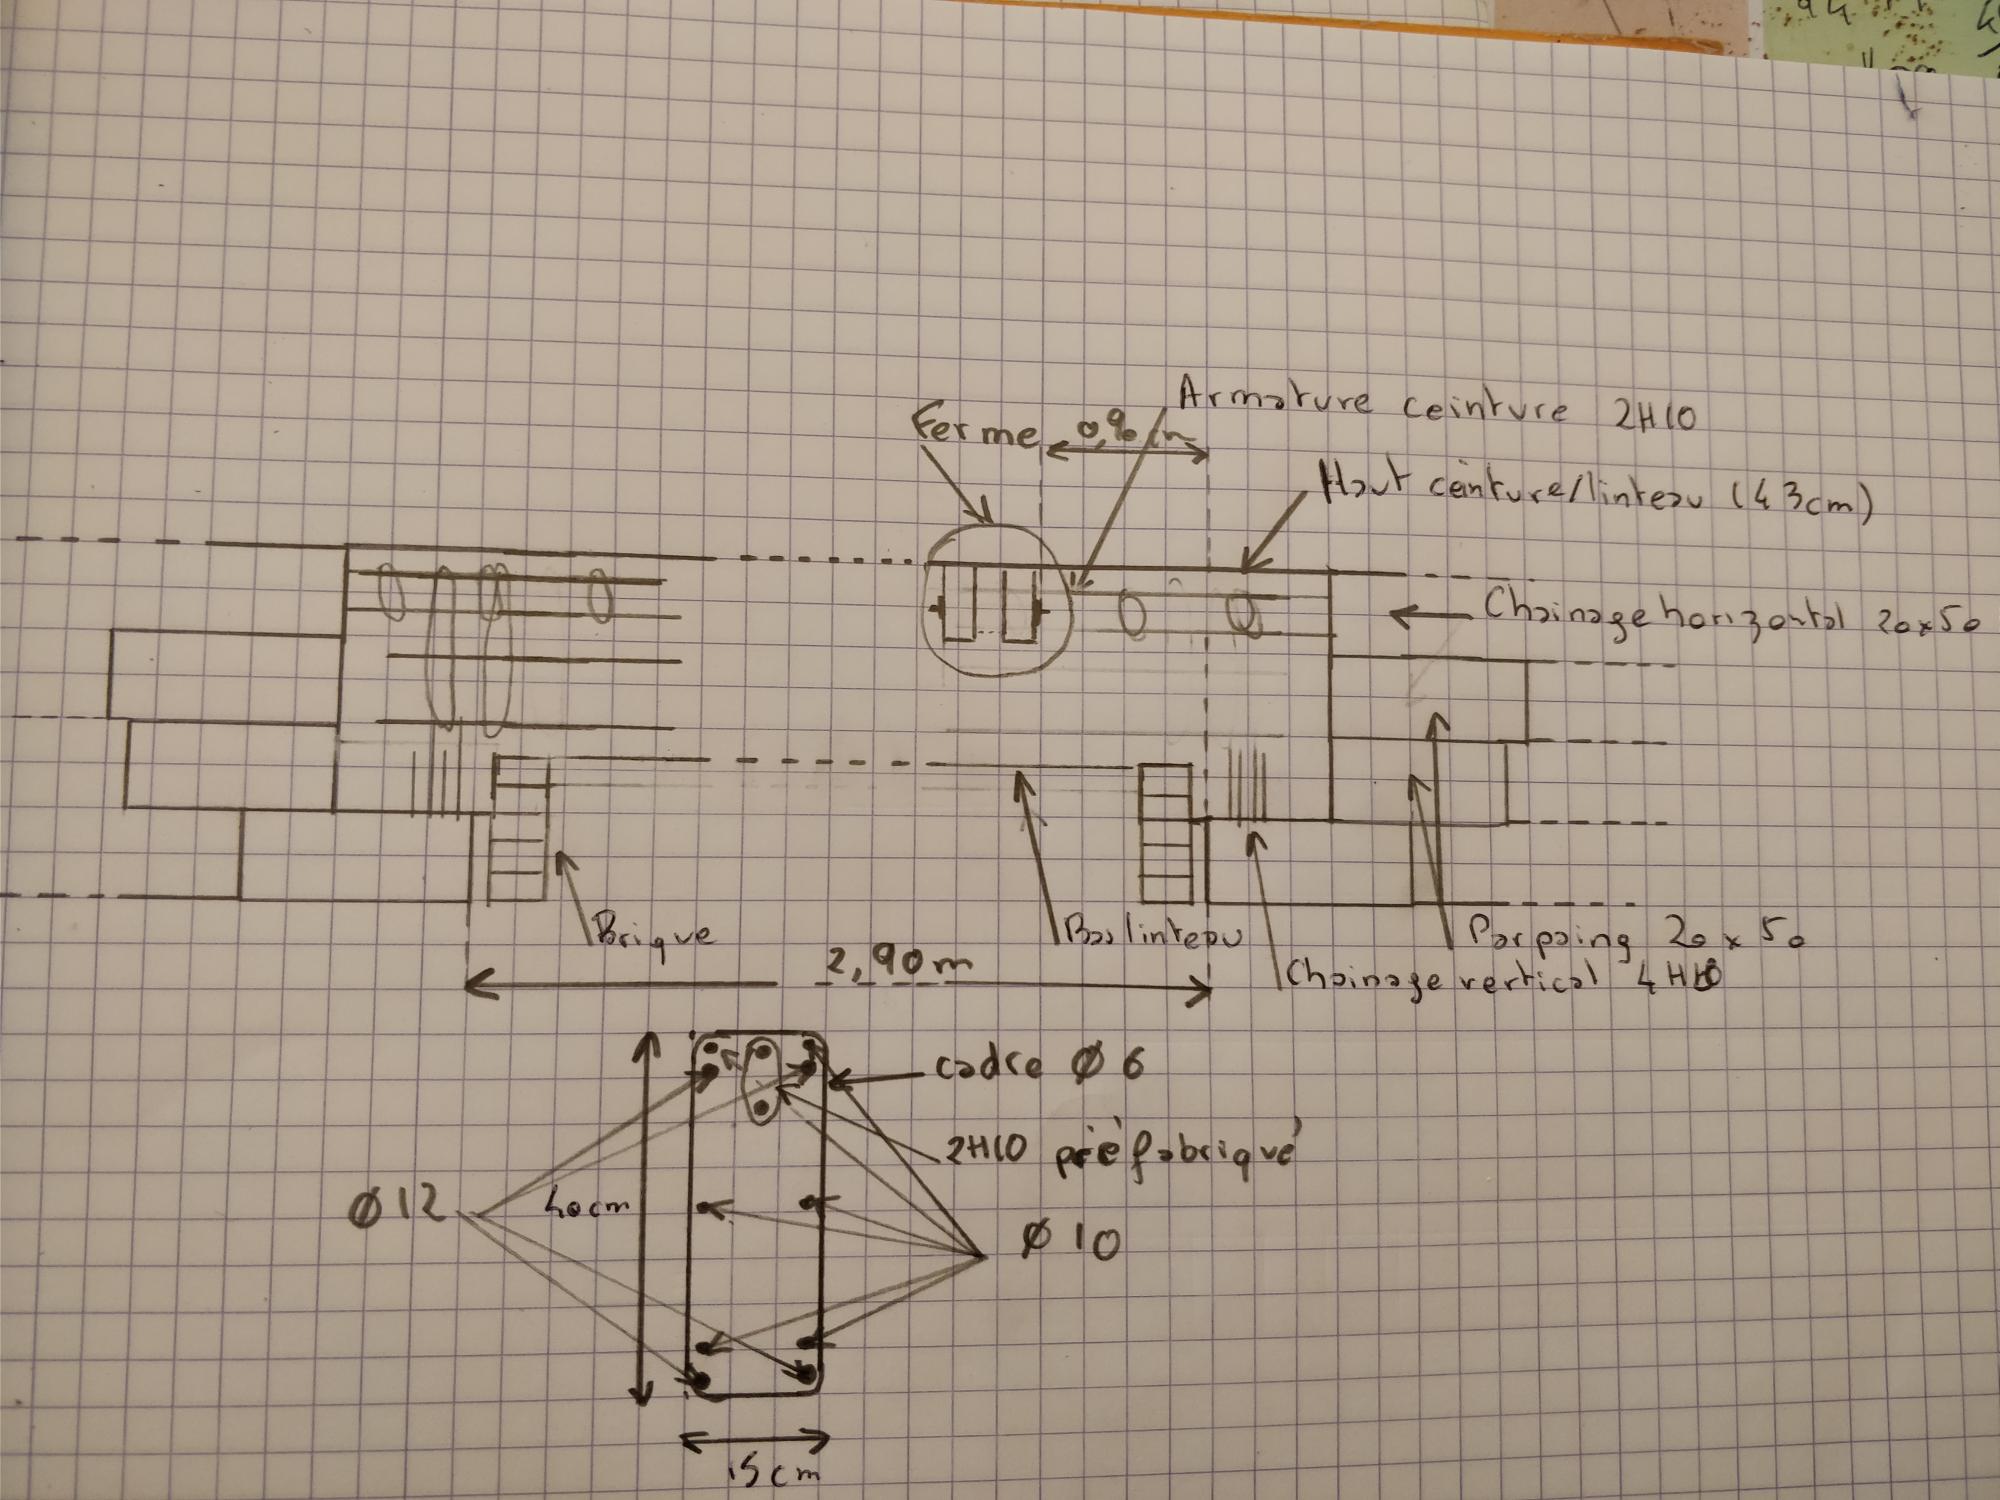 Armature ceinture 2H10
Ferme
Haut ceinture/linteau (43cm)
Chainage horizontal 20x50
Brique
Bas linteau
Parpaing 20 x 50
2,90m
Chainage vertical 4H10
cadre Ø 6
2H10 préfabriqué
Ø 12
40cm
Ø 10
15cm